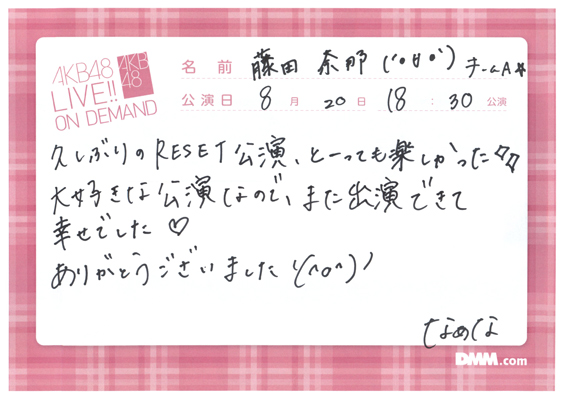 AKB48
LIVE!!
ON DEMAND
AKB
48
名 前 藤田 奈那 (°∀°) チームA☆
公演日 8 月 20 日 18 : 30 公演
久しぶりのRESET公演、とーっても楽しかった☆☆
大好きな公演なので、また出演できて
幸せでした♡
ありがとうございました\(^o^)/
なぁな
DMM.com